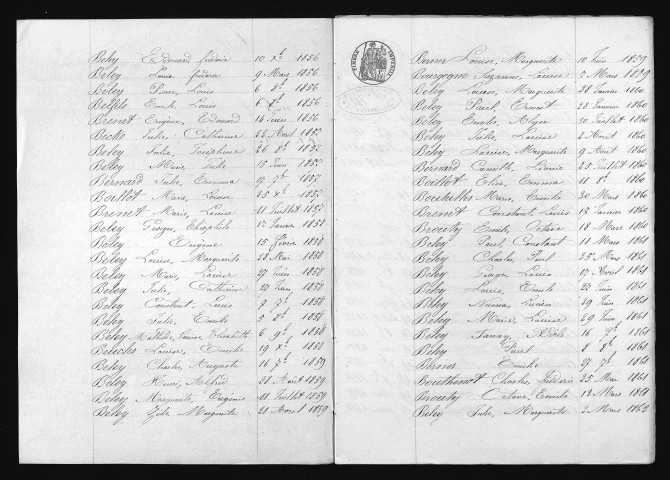 Beley Edouard frédéric 10 Xe 1856
Beley Louis 9 Mars 1856
Beley Pierre, Louis 6 8e 1856
Belfils Emile, Louis 6 1856
Bremet Eugène, Edouard 14 Juin 1856
Julie, Catherine 26 Avril 1857
Beley Julie, Joséphine 26 8e 1857
Beley Marie, Julie 15 Juin 1857
Bernard Julie, Emma 17 7e 1857
Boillot Marie, Louise 25 Xe 1857
Bremet Marie, Louise 11 Juillet 1857
Beley Georges, Théophile 17 Janvier 1858
Beley Eugène 15 1858
Beley Louise, Marguerite 28 Mai 1858
Beley Marie, Louise 27 Juin 1858
Beley Julie, Catherine 21 Juin 1858
Beley Constant, Louis 7 7e 1858
Beley Julie, Emile 5 8e 1858
Beley Mathilde, Louise, Elisabeth 6 9e 1858
Louise, Emilie 19 Xe 1858
Beley Charles, Auguste 16 7e 1859
Beley Henri, Alfred 28 Août 1859
Beley Marguerite, Eugénie 11 Juillet 1859
Beley Marguerite 21 Avril 1859
Louise, Marguerite 10 Juin 1859
Bourgogne Suzanne, Louise 7 Mars 1859
Beley Louise, Marguerite 28 Janvier 1860
Beley Paul, Ernest 22 Janvier 1860
Beley Emile, 30 Juillet 1860
Beley Julie, Louise 2 Avril 1860
Beley Louise, Marguerite 9 Avril 1860
Bernard Camille, Léonie 25 Juillet 1860
Boillot Elise, Emma 11 8e 1860
Marie, Emilie 30 Mars 1860
Bremet Constant, Louis 13 Janvier 1860
Brouty Emile, Octave 18 Mars 1860
Beley Paul, Constant 11 Mars 1861
Beley Charles, Paul 25 Mars 1861
Beley Georges, Louis 17 Avril 1861
Beley Louis, Emile 22 Juin 1861
Beley Numa, Lucien 29 Juin 1861
Beley Marie, Louise 29 Juin 1861
Beley Fanny, Adèle 16 7e 1861
Beley Paul 8 9e 1861
Emile 27 7e 1861
Bouthenot Charles, frédéric 25 Mai 1861
Brouty Octave, Emile 13 Mars 1861
Beley Julie, Marguerite 2 Mars 1862